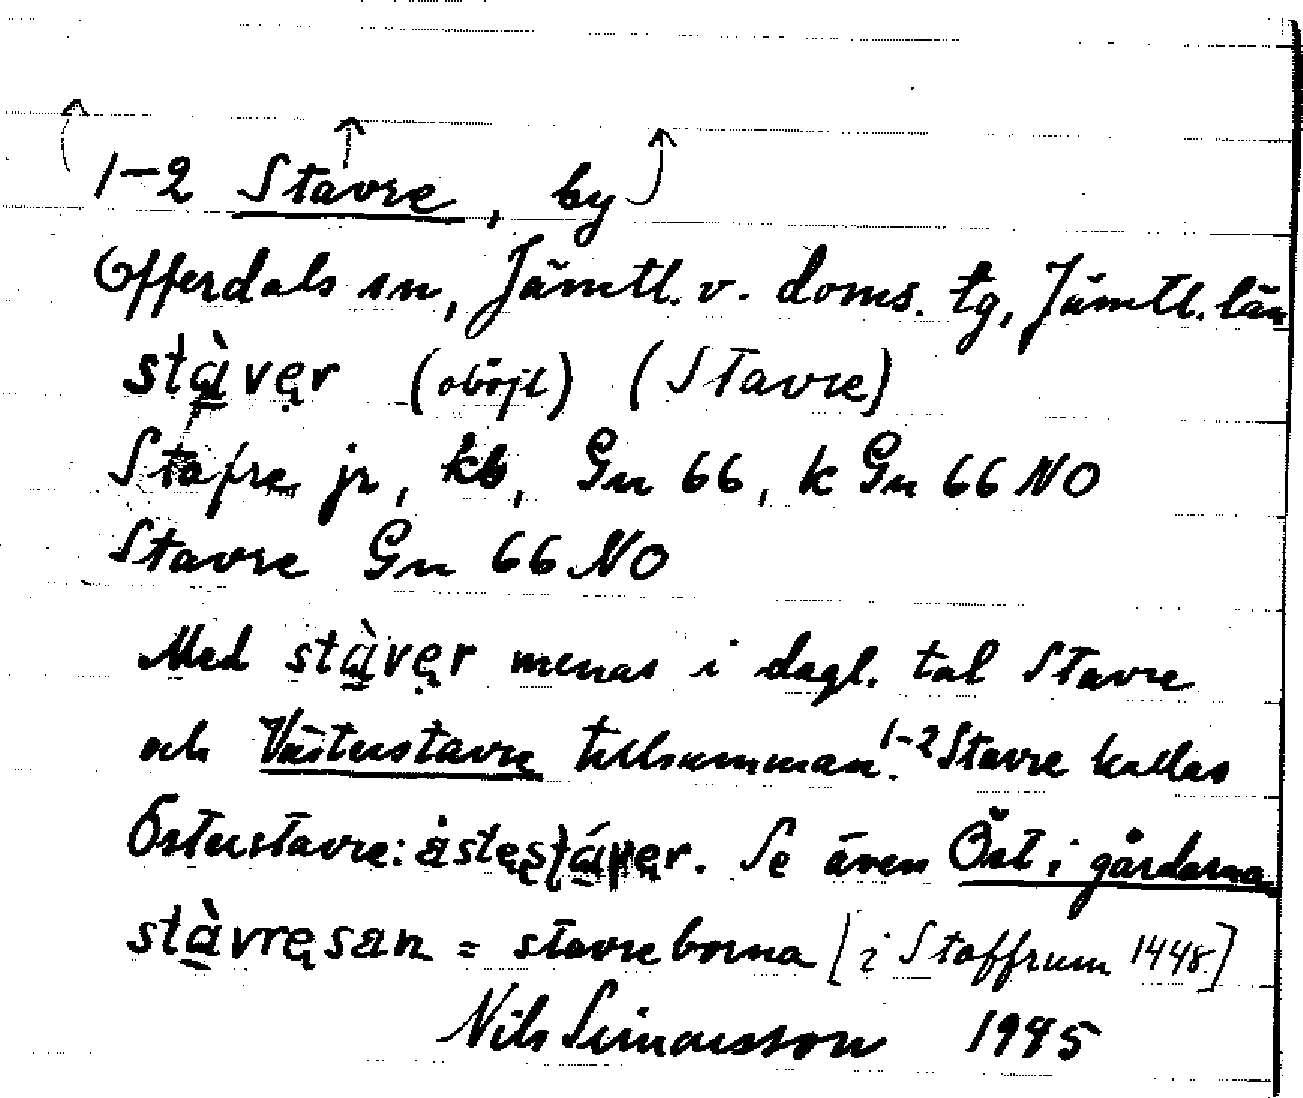 1-2 Stavre, by
Offerdals sn, Jämtl. v. doms. tg, Jämtl. län
stàver (oböjl) (Stavre)
Stafre jr, kb, Gn 66, k Gn 66 NO
Stavre Gn 66 NO
Med stàver menas i dagl. tal Stavre
och Västerstavre tillsamman. 1-2 Stavre kallas
Österstavre: åstestáver. Se även Öst i gårdarna
stàvresan = stavreborna [i Staffrum 1448]
Nils Simonsson 1945